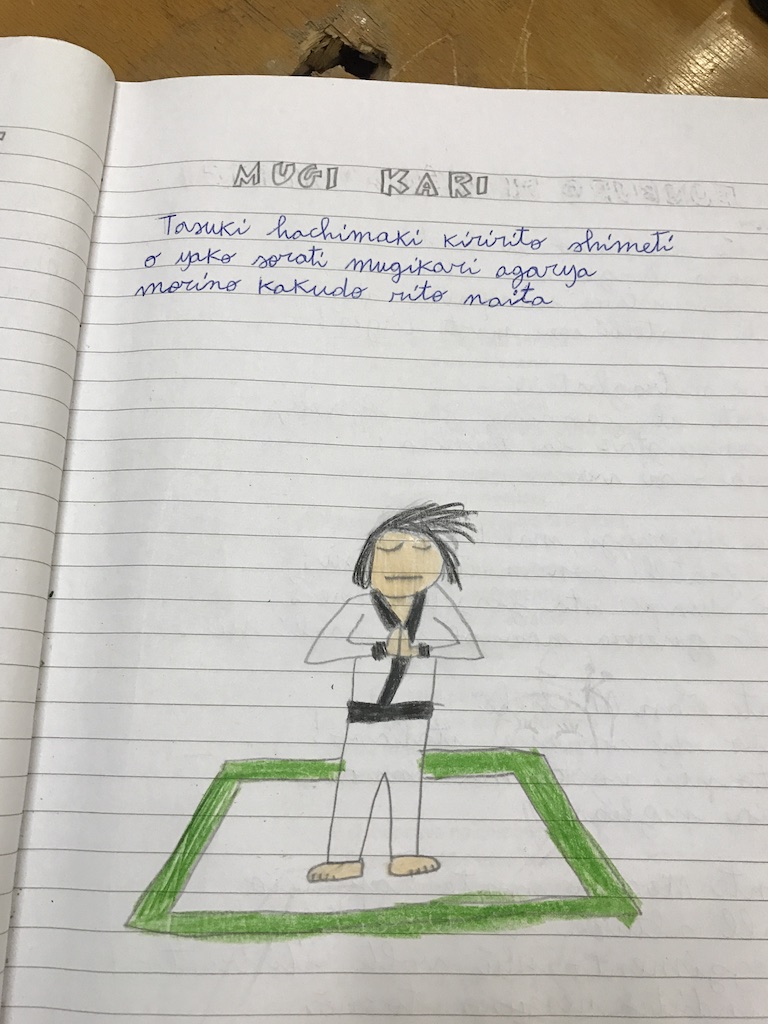 MUGI KARI
Tasuki hachimaki kiririto shimeti
o yako sorati mugikari agarya
morino kakudo rito naita